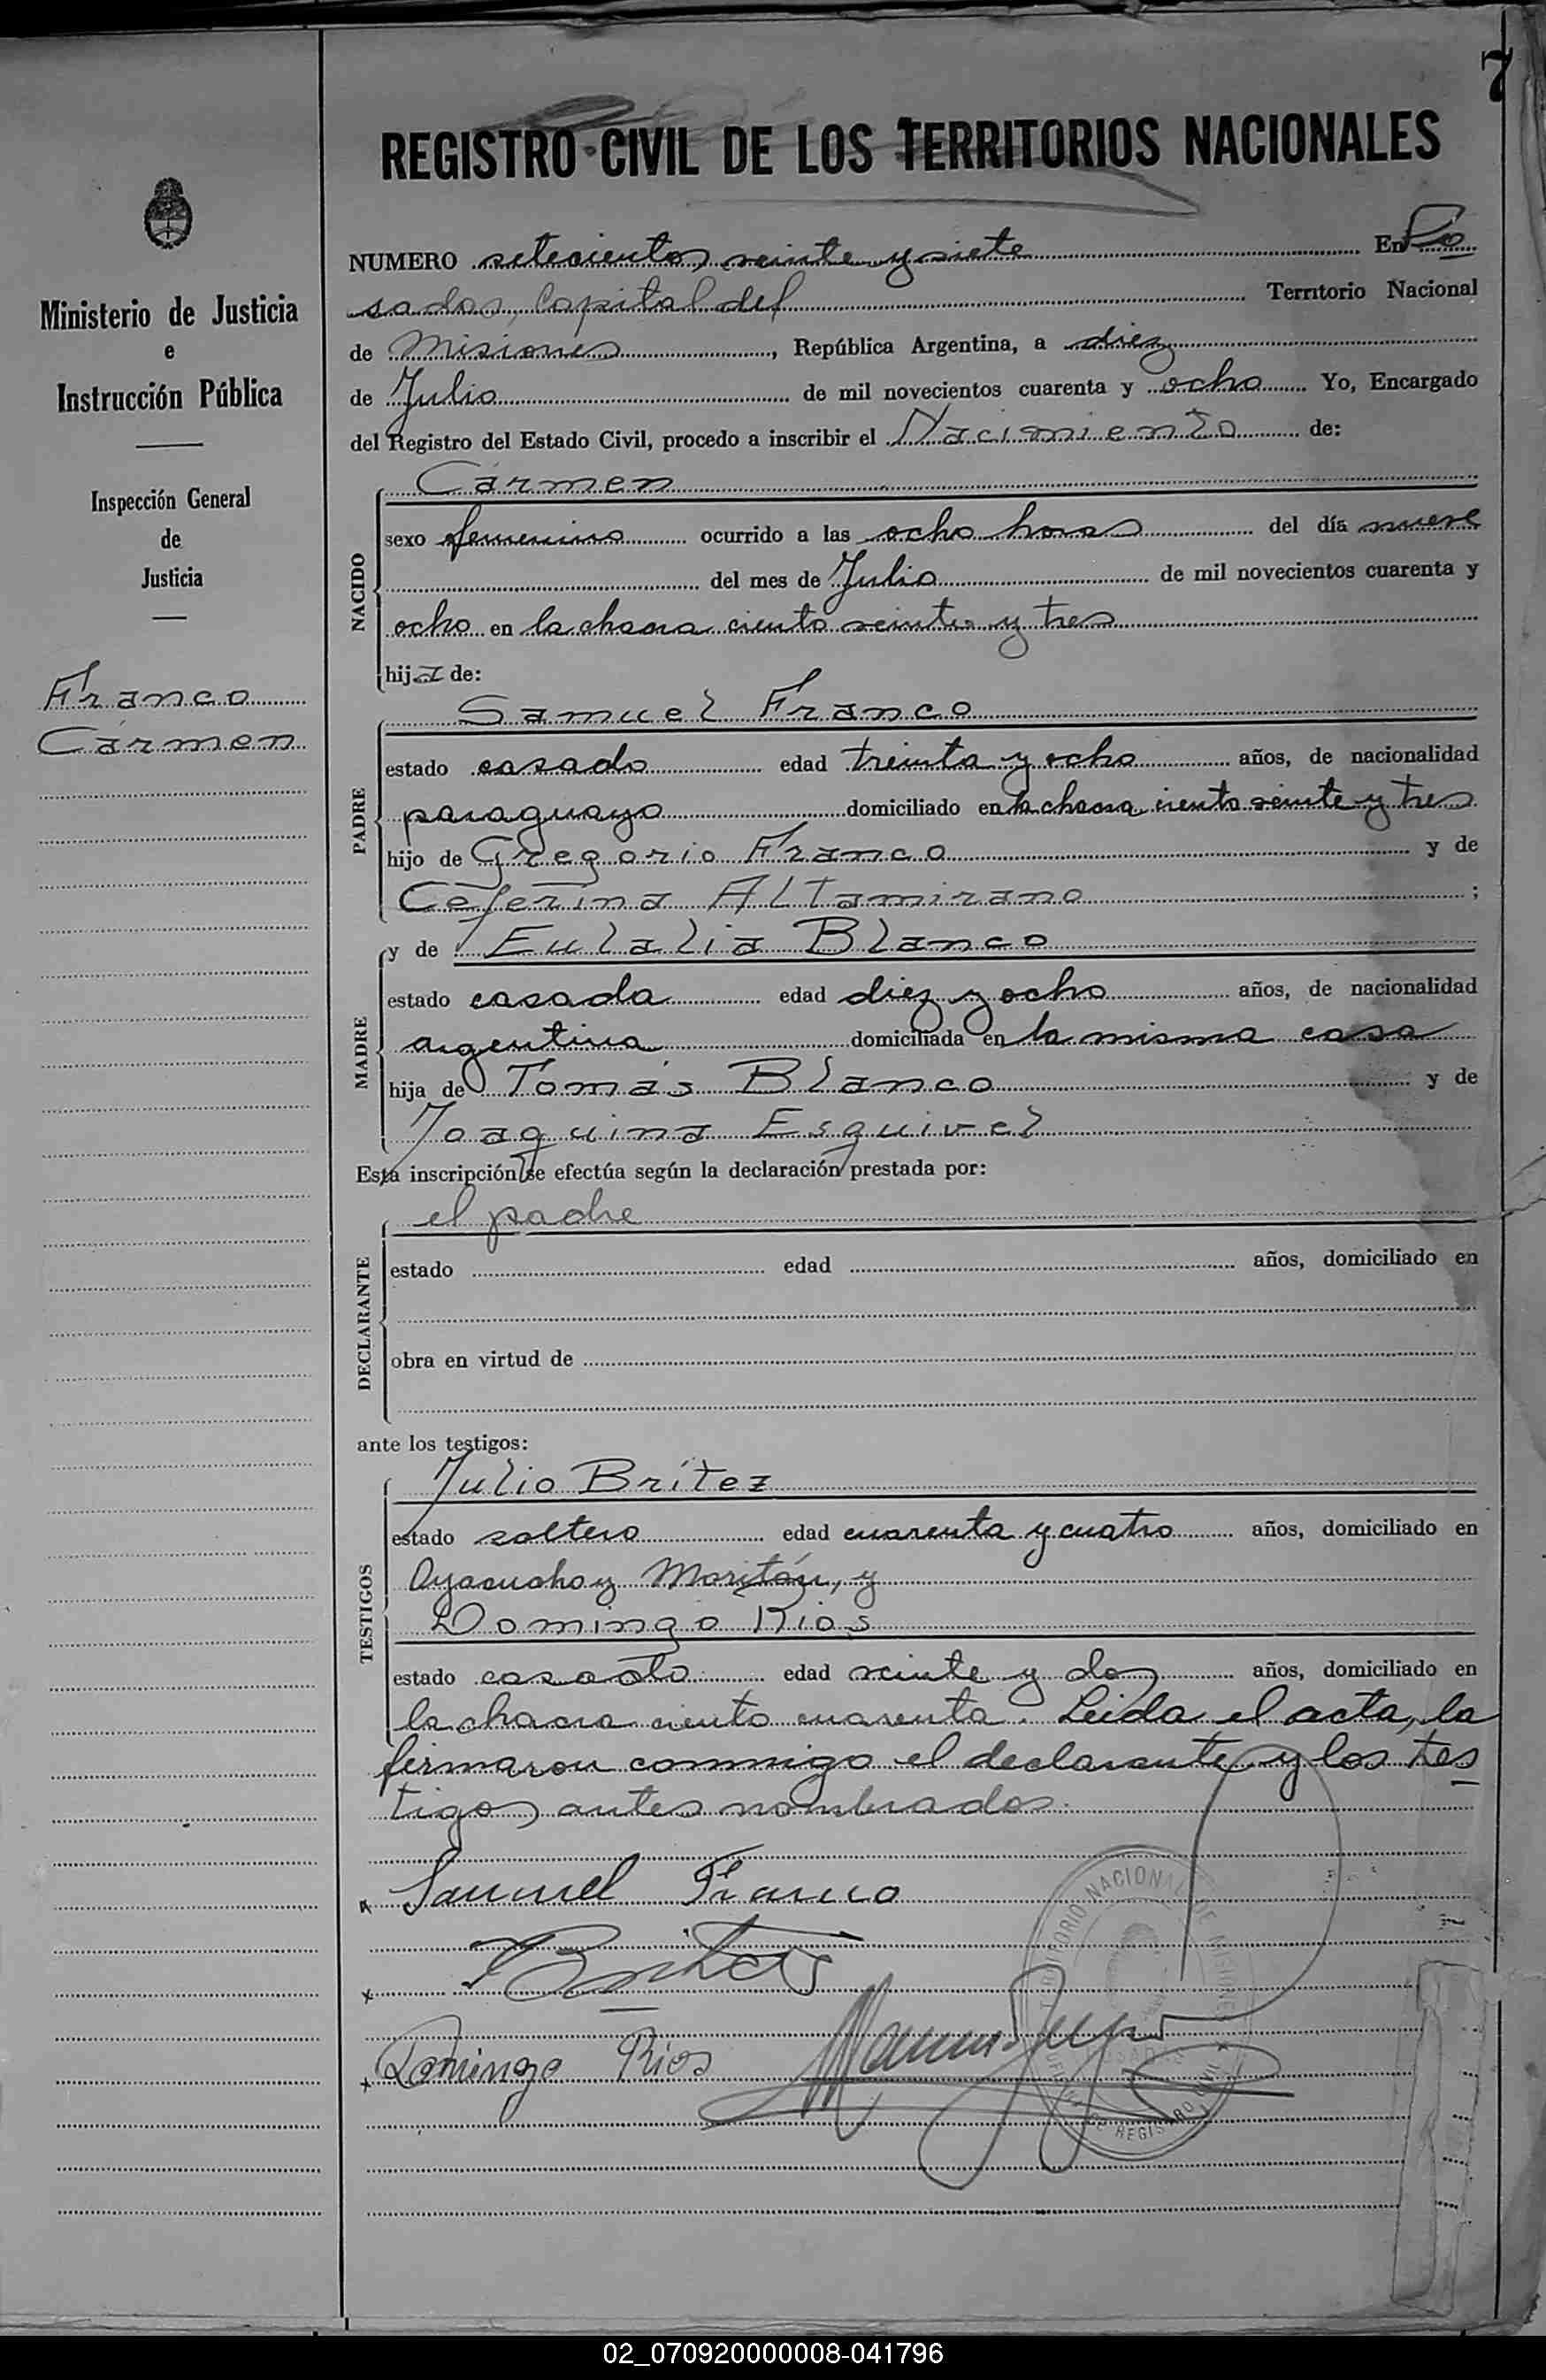 7
REGISTRO CIVIL DE LOS TERRITORIOS NACIONALES
Ministerio de Justicia
e
Instrucción Pública
Inspección General
de
Justicia
Franco
Cármen
NUMERO setecientos veinte y siete En Po
sadas, Capital del Territorio Nacional
de Misiones, República Argentina, a diez
de Julio de mil novecientos cuarenta y ocho Yo, Encargado
del Registro del Estado Civil, procedo a inscribir el Nacimiento de:
Cármen
NACIDO
sexo femenino ocurrido a las ocho horas del día nueve
del mes de Julio de mil novecientos cuarenta y
ocho en la chacra ciento veinte y tres
hija de:
Samuel Franco
PADRE
estado casado edad treinta y ocho años, de nacionalidad
paraguayo domiciliado en la chacra ciento veinte y tres
hijo de Gregorio Franco y de
Ceferina Altamirano ;
y de Eulalia Blanco
MADRE
estado casada edad diez y ocho años, de nacionalidad
argentina domiciliada en la misma casa
hija de Tomás Blanco y de
Joaquina Esquivel
Esta inscripción se efectúa según la declaración prestada por:
el padre
DECLARANTE
estado edad años, domiciliado en
obra en virtud de
ante los testigos:
Julio Brítez
TESTIGOS
estado soltero edad cuarenta y cuatro años, domiciliado en
Ayacucho y Moritán, y
Domingo Rios
estado casado edad veinte y dos años, domiciliado en
la chacra ciento cuarenta. Leida el acta, la
firmaron conmigo el declarante y los tes
tigos antes nombrados.
Samuel Franco
Domingo Rios
02_070920000008-041796